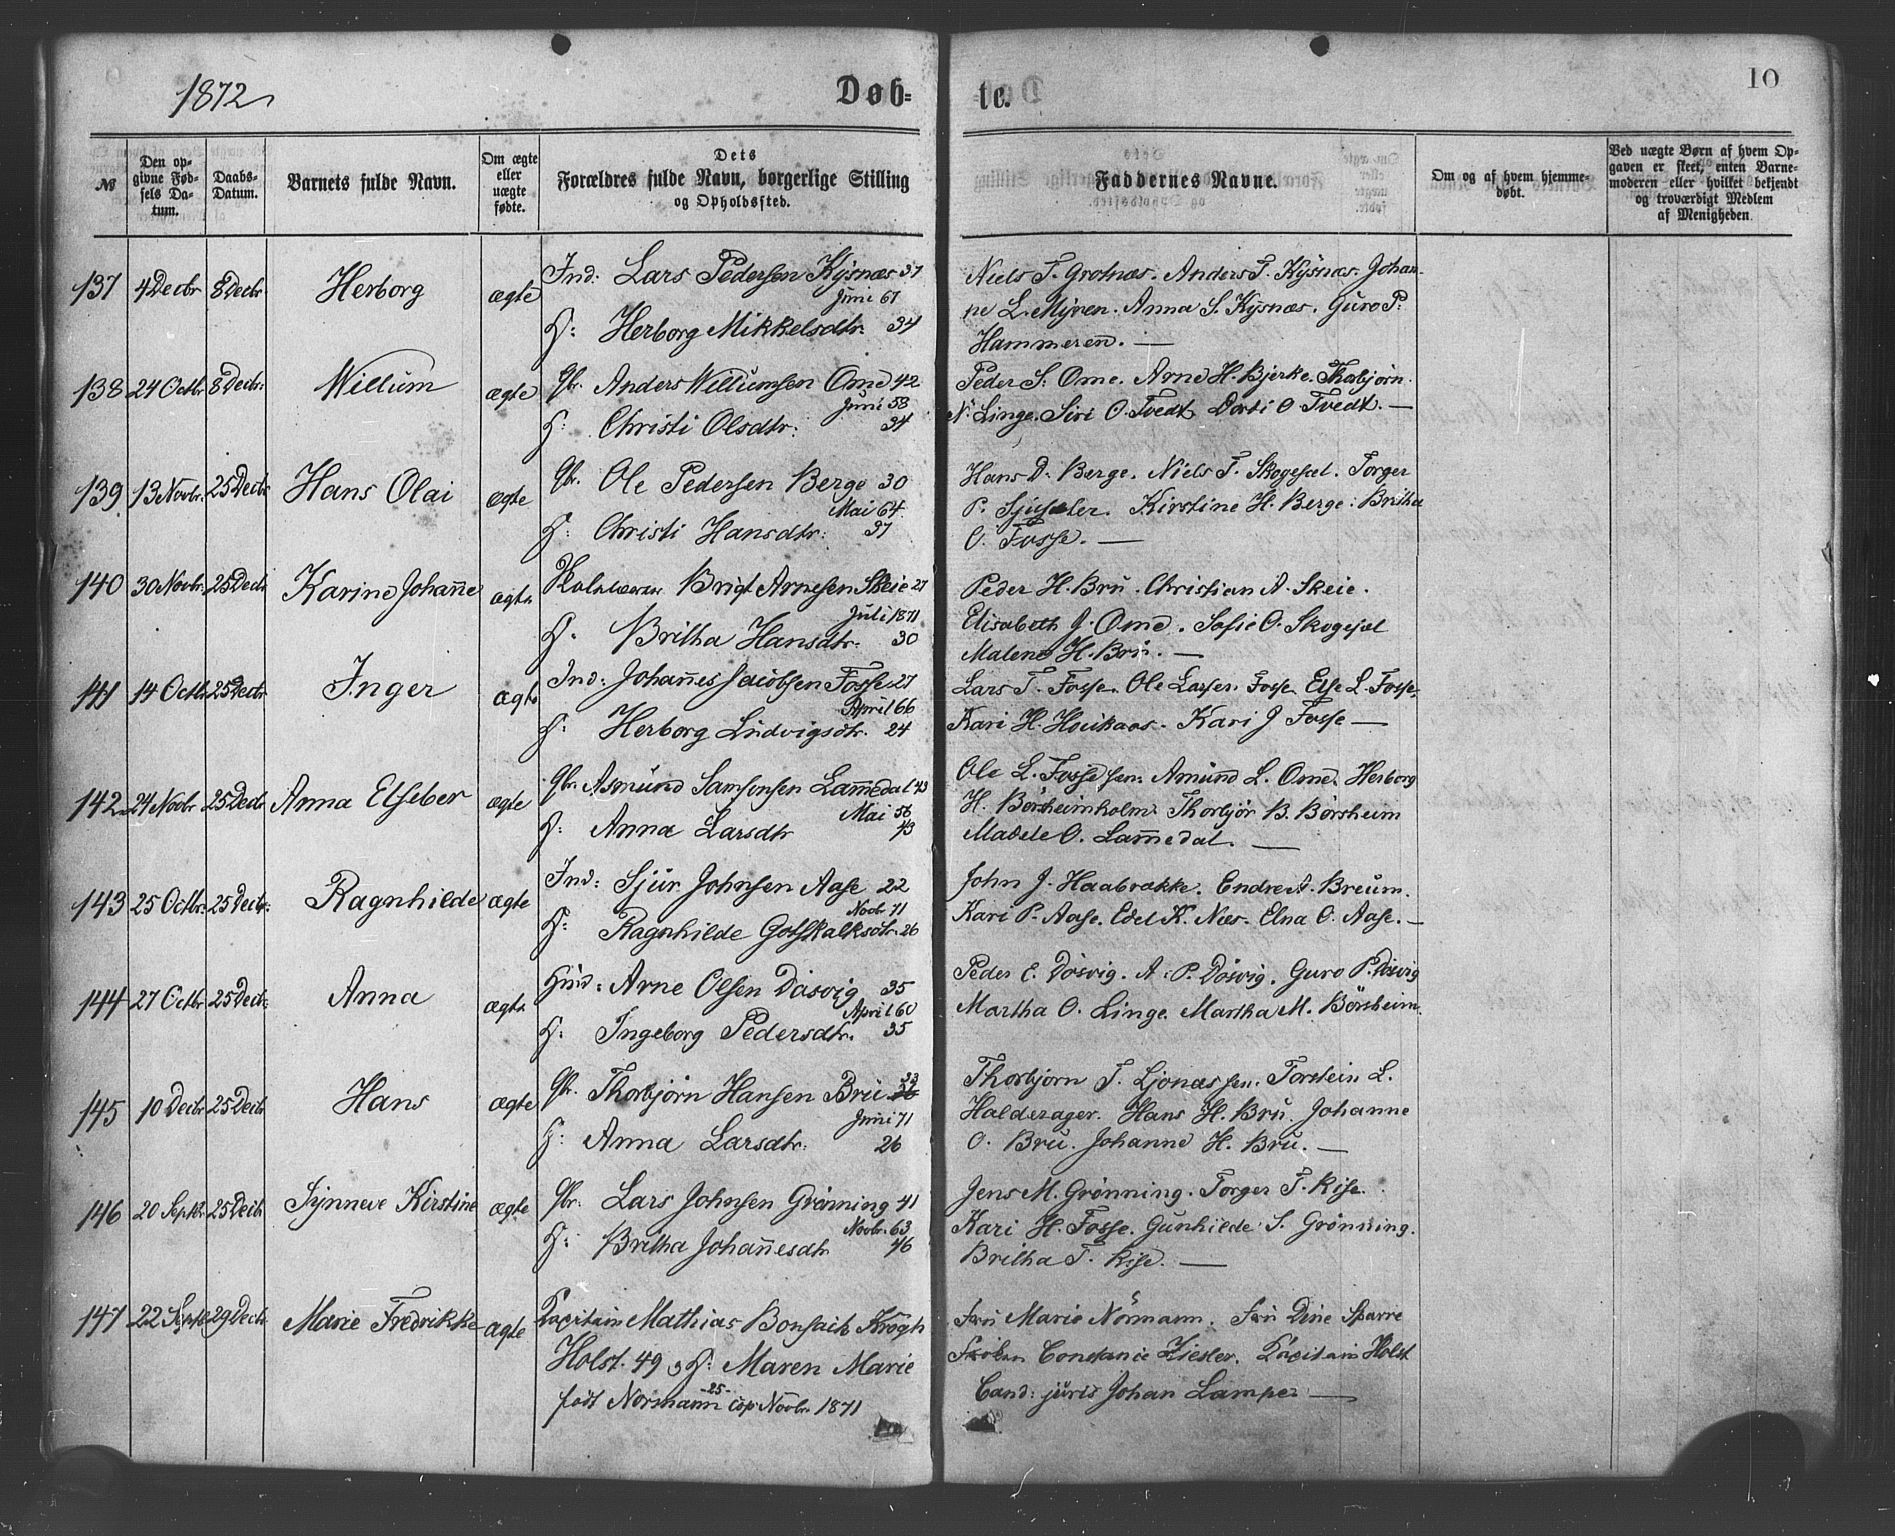 1872
Døb=
te.
10
№
Den op-
givne Fød-
sels Da-
tum.
Daabs-
Datum.
Barnets fulde Navn.
Om ægte
eller
uægte
fødte.
Dets
Forældres fulde Navn, borgerlige Stilling
og Opholdssted.
Faddernes Navne.
Om og af hvem hjemme-
døbt.
Ved uægte Børn af hvem Op-
gaven er skeet, enten Barne-
moderen eller hvilket bekjendt
og troværdigt Medlem
af Menigheden.
137 4 Decbr 8 Decbr Herborg ægte
Ind: Lars Pedersen Kysnæs 37
Juni 67
H: Herborg Mikkelsdtr: 34
Niels T. Grotnæs. Anders T. Kysnæs. Johan-
ne L. Myren. Anna S. Kysnæs. Guro P:
Hammeren. —
138 24 Octbr 8 Decbr: Willum ægte
Gbr. Anders Willumsen Ome 42
Juni 58
H: Christi Olsdtr: 34
Peder S: Ome. Arne H. Bjerke. Thorbjørn
N. Linge. Siri O. Tvedt. Dorti O Tvedt. —
139 13 Novbr. 25 Decbr Hans Olai ægte
Gbr. Ole Pedersen Berge 30
Mai 64.
H: Christi Hansdtr: 37
Hans D. Berge. Niels T. Skogesæl. Torger
P. Sjusæter. Kirstine H. Berge. Britha
O. Fosse. —
140 30 Novbr. 25 Decbr Karine Johanne ægte
Brigt Arnesen Skeie 27
Juli 1871
H. Britha Hansdtr. 30
Peder H. Bru. Christian A. Skeie.
Elisabeth J. Ome. Sofie O. Skogesæl
Malene H. Bru. —
141 14 Octbr 25 Decbr Inger ægte
Ind: Johannes Jacobsen Fosse 27
April 66
H: Herborg Ludvigsdtr. 24
Lars T. Fosse. Ole Larsen Fosse. Else L. Fosse.
Kari H. Houkaas. Kari J Fosse —
142 24 Novbr 25 Decbr Anna Elseber ægte
Gbr. Asmund Samsonsen Lammedal 43
Mai 56
H: Anna Larsdtr 43
Ole L. Fosse sen: Amund L. Ome. Herborg
H. Børsheimholm. Thorbjør B. Børsheim
Madele O. Lammedal. —
143 25 Octbr. 25 Decbr. Ragnhilde ægte
Ind: Sjur Johnsen Aase 22
Novbr 71
H: Ragnhilde Gotskalksdtr. 26
John J. Haabrække. Endre A. Breum.
Kari P. Aase. Edel K. Næs. Elna O. Aase. —
144 27 Octbr 25 Decbr. Anna ægte
Huusd: Arne Olsen Døsvig 35
April 60
H: Ingeborg Pedersdtr. 35
Peder E. Døsvig. A: P. Døsvig. Guro P. Døsvig
Martha O. Linge. Martha M. Børsheim.
145 10 Decbr 25 Decbr Hans ægte
Gbr. Thorbjørn Hansen Bru 33
Juni 71
H: Anna Larsdtr. 26
Thorbjorn T. Ljonæs sen: Torstein L.
Halderager. Hans H. Bru. Johanne
O. Bru. Johanne H. Bru. —
146 20 Septbr. 25 Decbr Synneve Kirstine ægte
Gbr. Lars Johnsen Grønning 41
Novbr. 63
H: Britha Johannesdtr 46
Jens M. Grønning. Torger T. Risе.
Kari H. Fosse. Gunhilde S. Grønning.
Britha T. Rise. —
147 22 Septbr 29 Decbr Marie Fredrikke ægte
Kapitain Mathias Bonsack Krogh
Holst. 49 og H: Maren Marie
født Normann 25 cop: Novbr. 1871
Fru Marie Normann. Fru Dine Sparre
Frøken Constance Ziesler. Kapitain Holst
Cand: juris Johan Lampe. —